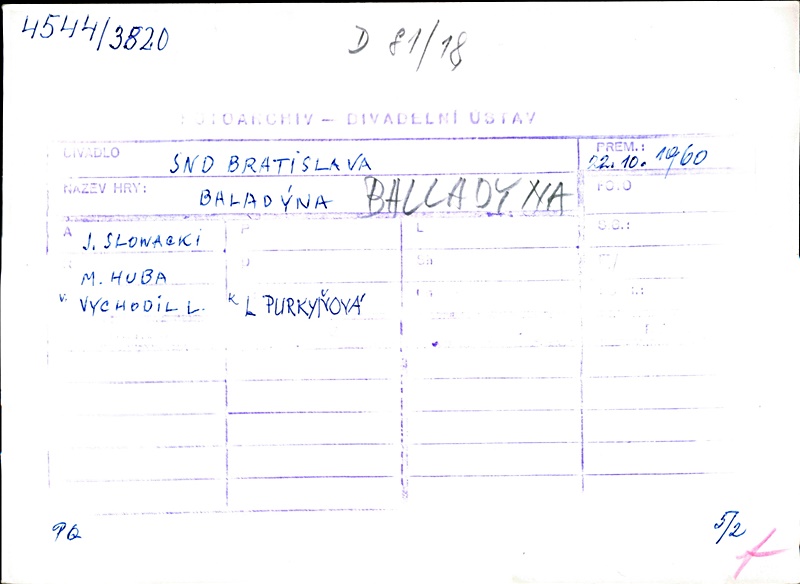 4544/3820
D 81/18
FOTOARCHIV – DIVADELNÍ ÚSTAV
DIVADLO SND BRATISLAVA
PREM.: 22.10. 1960
NÁZEV HRY: BALADÝNA BALLADYNA
A J. SLOWACKI
M. HUBA
V. VYCHODIL L. K L PURKYŇOVÁ
PQ
5/2